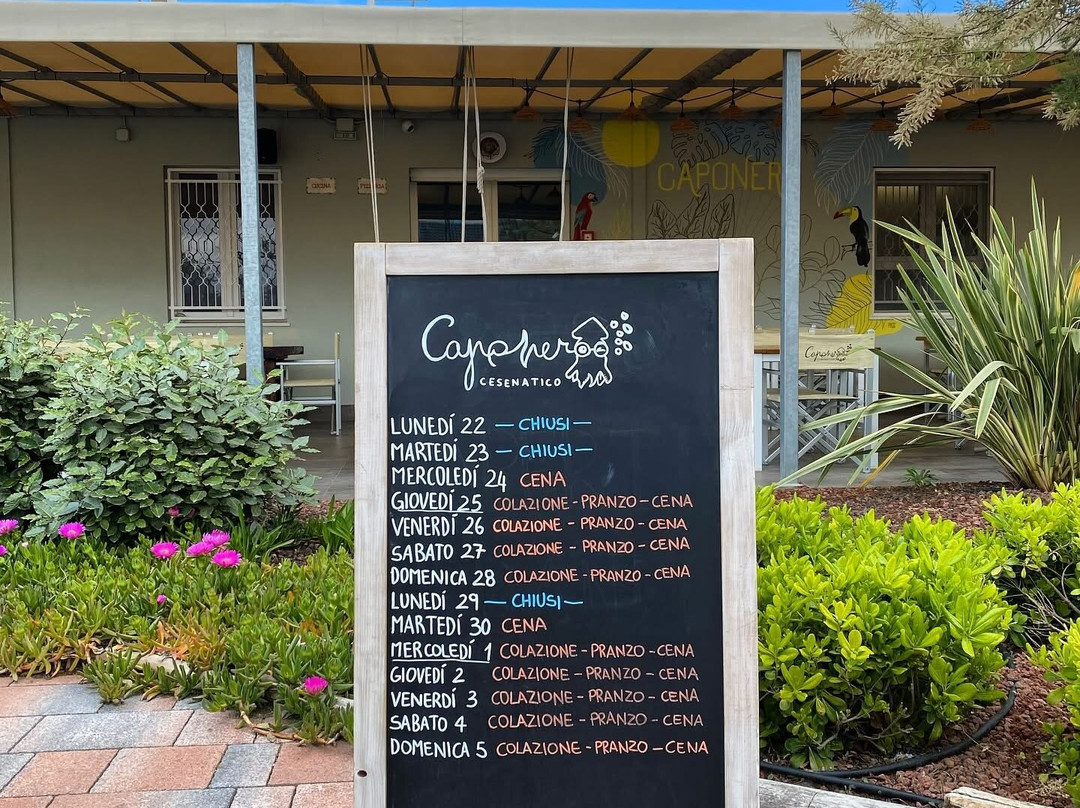 CUCINA
CAPONER
Caponera
Caponera
CESENATICO
LUNEDÍ 22 — CHIUSI —
MARTEDÍ 23 — CHIUSI —
MERCOLEDÍ 24 CENA
GIOVEDÍ 25 COLAZIONE - PRANZO - CENA
VENERDÍ 26 COLAZIONE - PRANZO - CENA
SABATO 27 COLAZIONE - PRANZO - CENA
DOMENICA 28 COLAZIONE - PRANZO - CENA
LUNEDÍ 29 — CHIUSI —
MARTEDÍ 30 CENA
MERCOLEDÍ 1 COLAZIONE - PRANZO - CENA
GIOVEDÍ 2 COLAZIONE - PRANZO - CENA
VENERDÍ 3 COLAZIONE - PRANZO - CENA
SABATO 4 COLAZIONE - PRANZO - CENA
DOMENICA 5 COLAZIONE - PRANZO - CENA